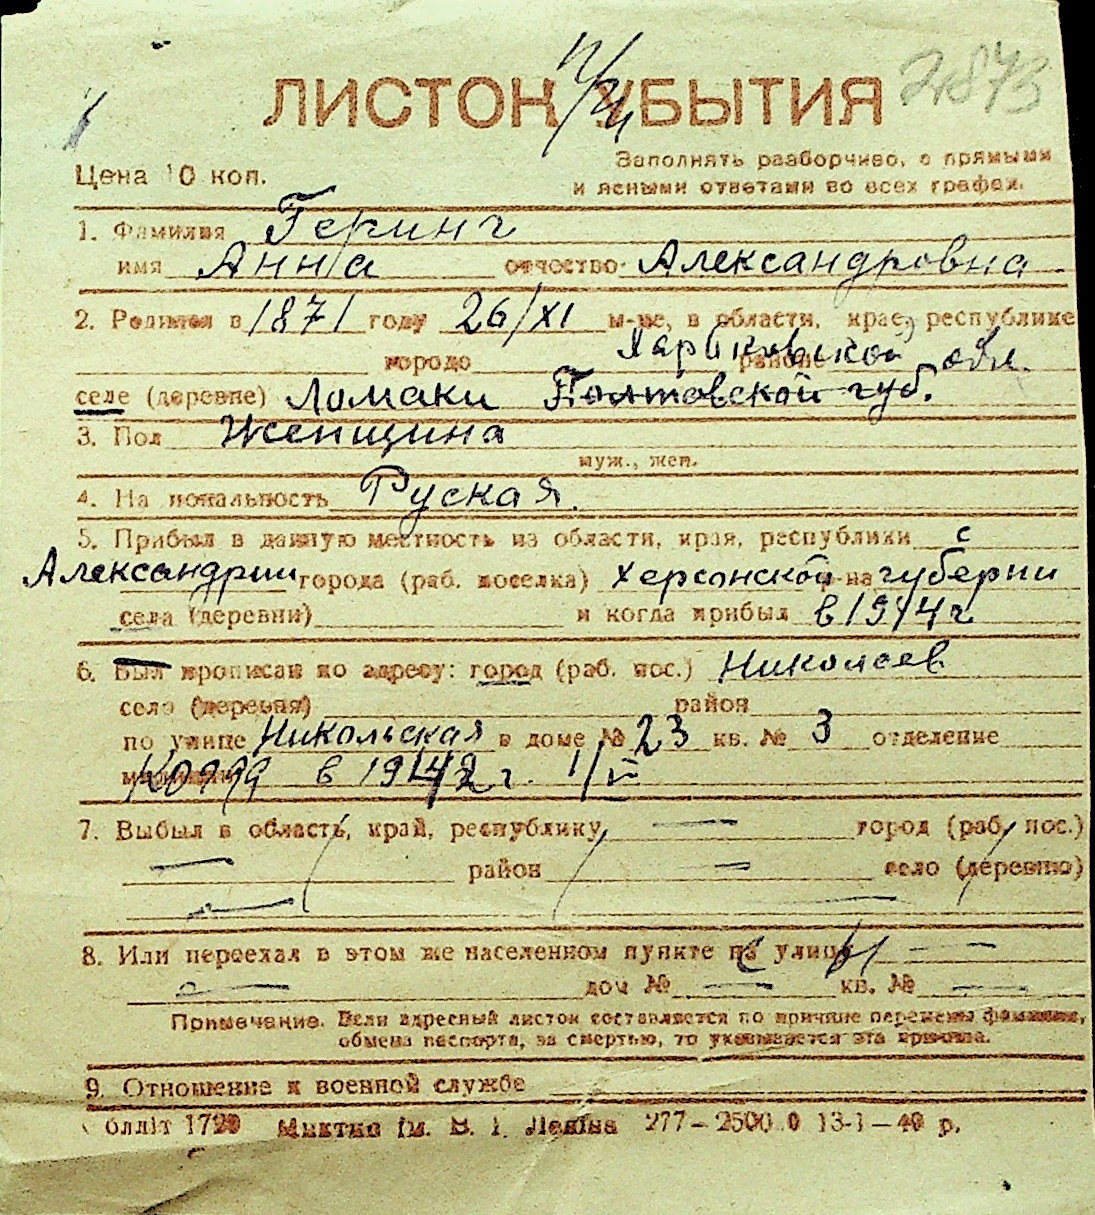 2873
ЛИСТОК УБЫТИЯ
Цена 10 коп.
Заполнять разборчиво, с прямыми
и ясными ответами во всех графах.
1. Фамилия Геринг
имя Анна отчество Александровна
2. Родился в 1871 году 26/XI м-це, в области, крае, республике
городе районе Харьковской обл.
селе (деревне) Ломаки Полтовской губ.
3. Пол Женщина
муж., жен.
4. Национальность Руская.
5. Прибыл в данную местность из области, края, республики с
Александрии города (раб. поселка) Херсонской р-на губерни
села (деревни) и когда прибыл в 1914 г
6. Был прописан по адресу: город (раб. пос.) Николаев
село (деревня) район
по улице Никольская в доме № 23 кв. № 3 отделение
милиции когда в 1942 г. 1/V
7. Выбыл в область, край, республику — город (раб. пос.)
— район — село (деревню)
—
8. Или переехал в этом же населенном пункте на улицу — —
— дом № — кв. № —
Примечание. Если адресный листок составляется по причине перемены фамилии,
обмена паспорта, за смертью, то указывается эта причина.
9. Отношение к военной службе
Облліт 1720 Миктип ім. В. І. Леніна 277—2500.0 13-1—40 р.